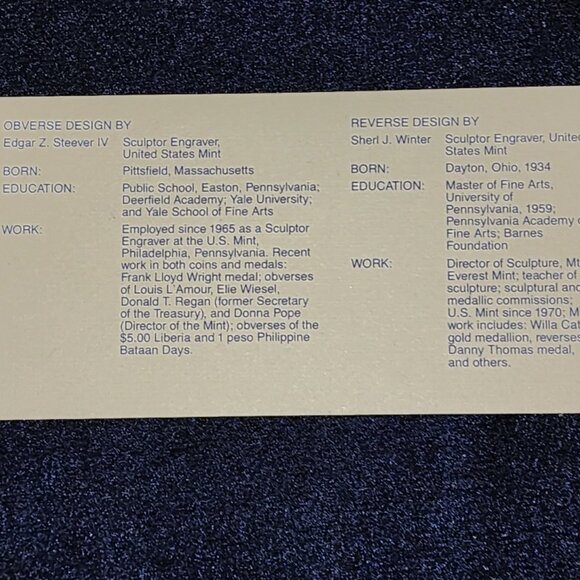 OBVERSE DESIGN BY
Edgar Z. Steever IV Sculptor Engraver,
United States Mint
BORN: Pittsfield, Massachusetts
EDUCATION: Public School, Easton, Pennsylvania;
Deerfield Academy; Yale University;
and Yale School of Fine Arts
WORK: Employed since 1965 as a Sculptor
Engraver at the U.S. Mint,
Philadelphia, Pennsylvania. Recent
work in both coins and medals:
Frank Lloyd Wright medal; obverses
of Louis L'Amour, Elie Wiesel,
Donald T. Regan (former Secretary
of the Treasury), and Donna Pope
(Director of the Mint); obverses of the
$5.00 Liberia and 1 peso Philippine
Bataan Days.
REVERSE DESIGN BY
Sherl J. Winter Sculptor Engraver, United
States Mint
BORN: Dayton, Ohio, 1934
EDUCATION: Master of Fine Arts,
University of
Pennsylvania, 1959;
Pennsylvania Academy o
Fine Arts; Barnes
Foundation
WORK: Director of Sculpture, Mt
Everest Mint; teacher of
sculpture; sculptural and
medallic commissions;
U.S. Mint since 1970; M
work includes: Willa Cat
gold medallion, reverses
Danny Thomas medal,
and others.